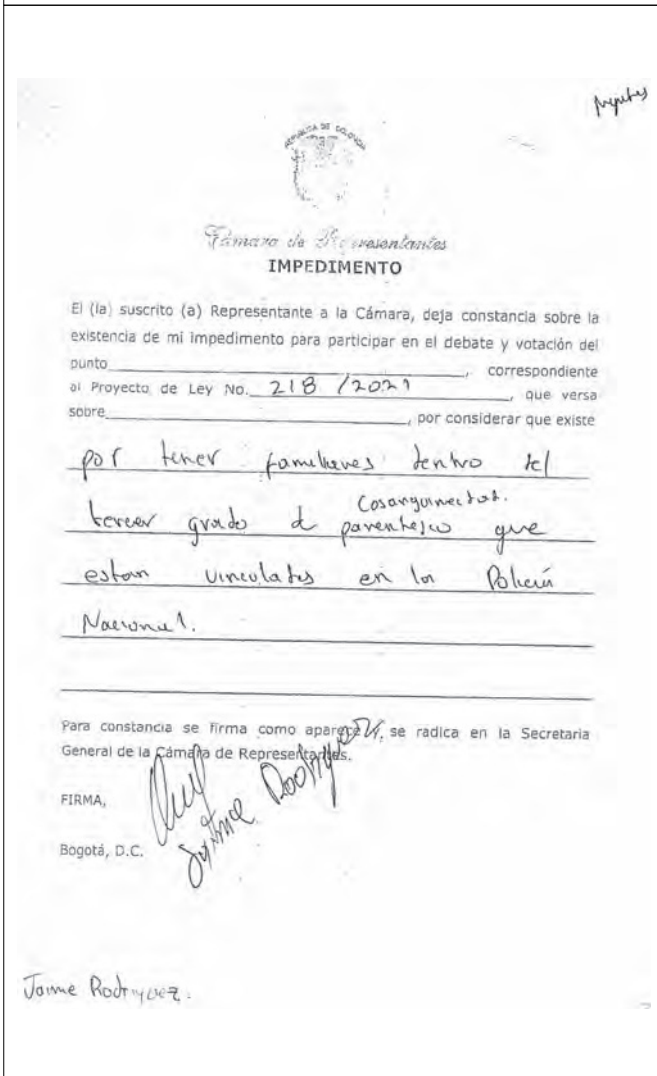 REPUBLICA DE COLOMBIA
Cámara de Representantes
IMPEDIMENTO
El (la) suscrito (a) Representante a la Cámara, deja constancia sobre la
existencia de mi impedimento para participar en el debate y votación del
punto____________, correspondiente
al Proyecto de Ley No. 218 /2021, que versa
sobre____________, por considerar que existe
por tener familiares dentro del
Cosanguinectad.
tercer grado d parentesco que
estan vinculados en la Policía
Nacional.
Para constancia se firma como aparece, se radica en la Secretaria
General de la Cámara de Representantes.
FIRMA,
Jaime Rodriguez
Bogotá, D.C.
Jaime Rodriguez.